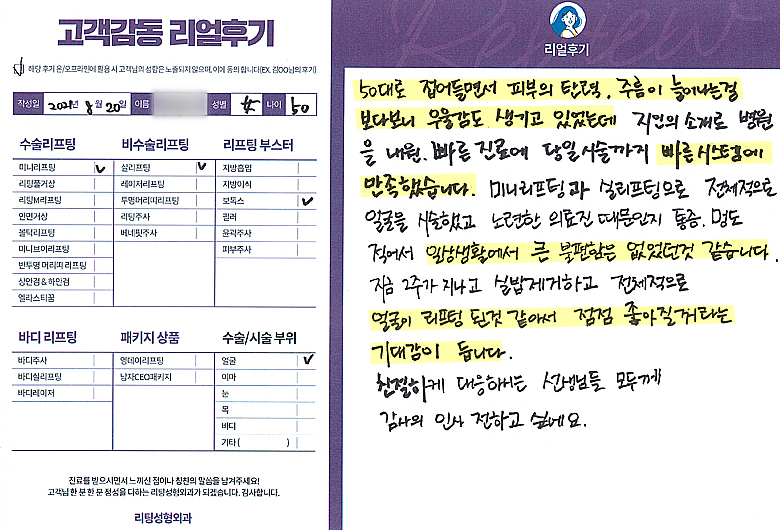 고객감동 리얼후기
해당 후기 온/오프라인에 활용 시 고객님의 성함은 노출되지 않으며, 이에 동의 합니다(EX. 김OO님의 후기)
작성일 2021년 8월 20일 이름 성별 女 나이 50
수술리프팅
미니리프팅
리팅풀거상
리팅M리프팅
안면거상
볼턱리프팅
미니브이리프팅
반투명 머리띠 리프팅
상안검 & 하안검
엘라스티꿈
비수술리프팅
실리프팅
레이저리프팅
투명머리띠리프팅
리팅주사
베네핏주사
리프팅 부스터
지방흡입
지방이식
보톡스
필러
윤곽주사
피부주사
바디 리프팅
바디주사
바디실리프팅
바디레이저
패키지 상품
영데이리프팅
남자CEO패키지
수술/시술 부위
얼굴
이마
눈
목
바디
기타 ( )
진료를 받으시면서 느끼신 점이나 칭찬의 말씀을 남겨주세요!
고객님 한 분 한 분 정성을 다하는 리팅성형외과가 되겠습니다. 감사합니다.
리팅성형외과
Review
리얼후기
50대로 접어들면서 피부의 탄력, 주름이 늘어나는걸
보다보니 우울감도 생기고 있었는데 지인의 소개로 병원
을 내원. 빠른 진료에 당일시술까지 빠른시스템에
만족했습니다. 미니리프팅과 실리프팅으로 전체적으로
얼굴을 시술했고 노련한 의료진 때문인지 통증, 멍도
적어서 일상생활에서 큰 불편함은 없었던것 같습니다.
지금 2주가 지나고 실밥제거하고 전체적으로
얼굴이 리프팅 된것 같아서 점점 좋아질거라는
기대감이 듭니다.
친절하게 대응하시는 선생님들 모두께
감사의 인사 전하고 싶네요.